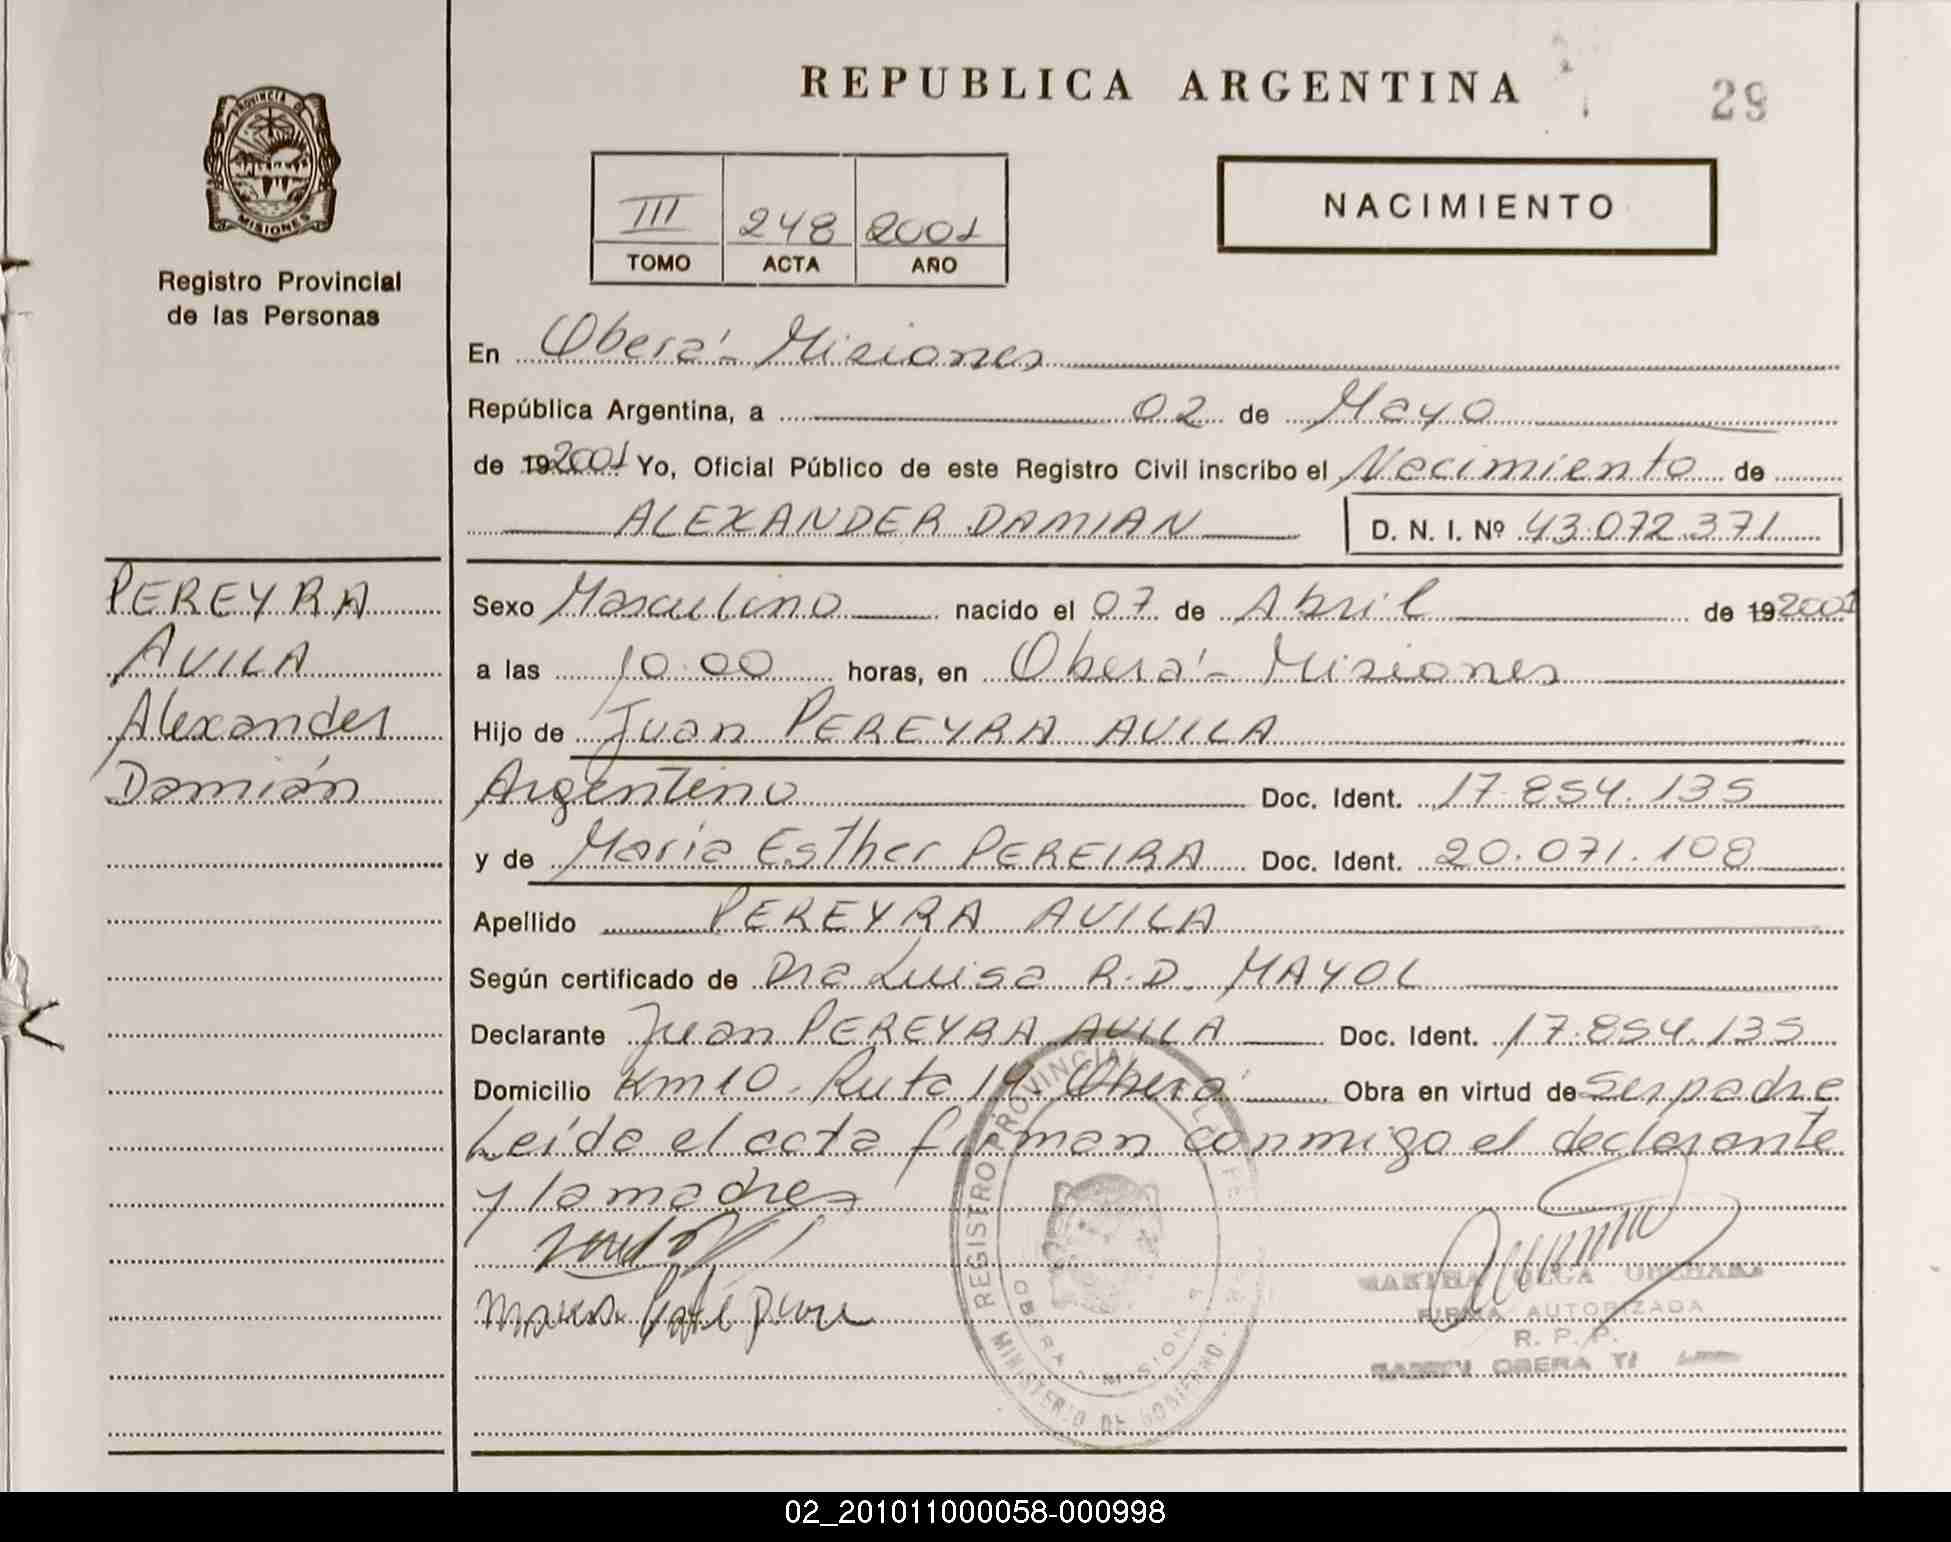 REPUBLICA ARGENTINA
29
PROVINCIA DE
MISIONES
Registro Provincial
de las Personas
III 248 2001
TOMO ACTA AÑO
NACIMIENTO
En Oberá - Misiones
República Argentina, a 02 de Mayo
de 19 2001 Yo, Oficial Público de este Registro Civil inscribo el Nacimiento de
ALEXANDER DAMIAN D. N. I. Nº 43.072.371
PEREYRA
AVILA
Alexander
Damián
Sexo Masculino nacido el 07 de Abril de 19 2001
a las 10.00 horas, en Oberá - Misiones
Hijo de Juan PEREYRA AVILA
Argentino Doc. Ident. 17.854.135
y de María Esther PEREIRA Doc. Ident. 20.071.108
Apellido PEREYRA AVILA
Según certificado de Dra Luisa R.D. MAYOL
Declarante Juan PEREYRA AVILA Doc. Ident. 17.854.135
Domicilio Km 10 - Ruta 14 Oberá Obra en virtud de ser padre
Leída el acta firman conmigo el declarante
y la madre
REGISTRO PROVINCIAL DE
MINISTERIO DE GOBIERNO
OBERA MISIONES
MARTHA OLGA
FIRMA AUTORIZADA
R. P. P.
OBERA
02_201011000058-000998